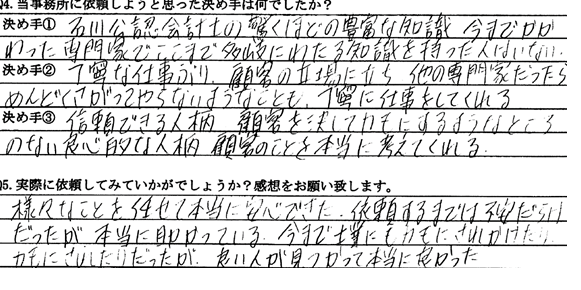 Q4. 当事務所に依頼しようと思った決め手は何でしたか？
決め手① 石川公認会計士の驚くほどの豊富な知識 今までかか
わった専門家でここまで多岐にわたる知識を持った人はいない。
決め手② 丁寧な仕事ぶり、顧客の立場に立ち 他の専門家だったら
めんどくさがってやらないようなことも、丁寧に仕事をしてくれる
決め手③ 信頼できる人柄 顧客を決してカモにするようなところ
のない良心的な人柄 顧客のことを本当に考えてくれる。
Q5. 実際に依頼してみていかがでしょうか？感想をお願い致します。
様々なことを任せて本当に安心できた。依頼するまでは不安だらけ
だったが 本当に助かっている。今まで士業にもカモにされかけたり
カモにされたりだったが、良い人が見つかって本当に良かった